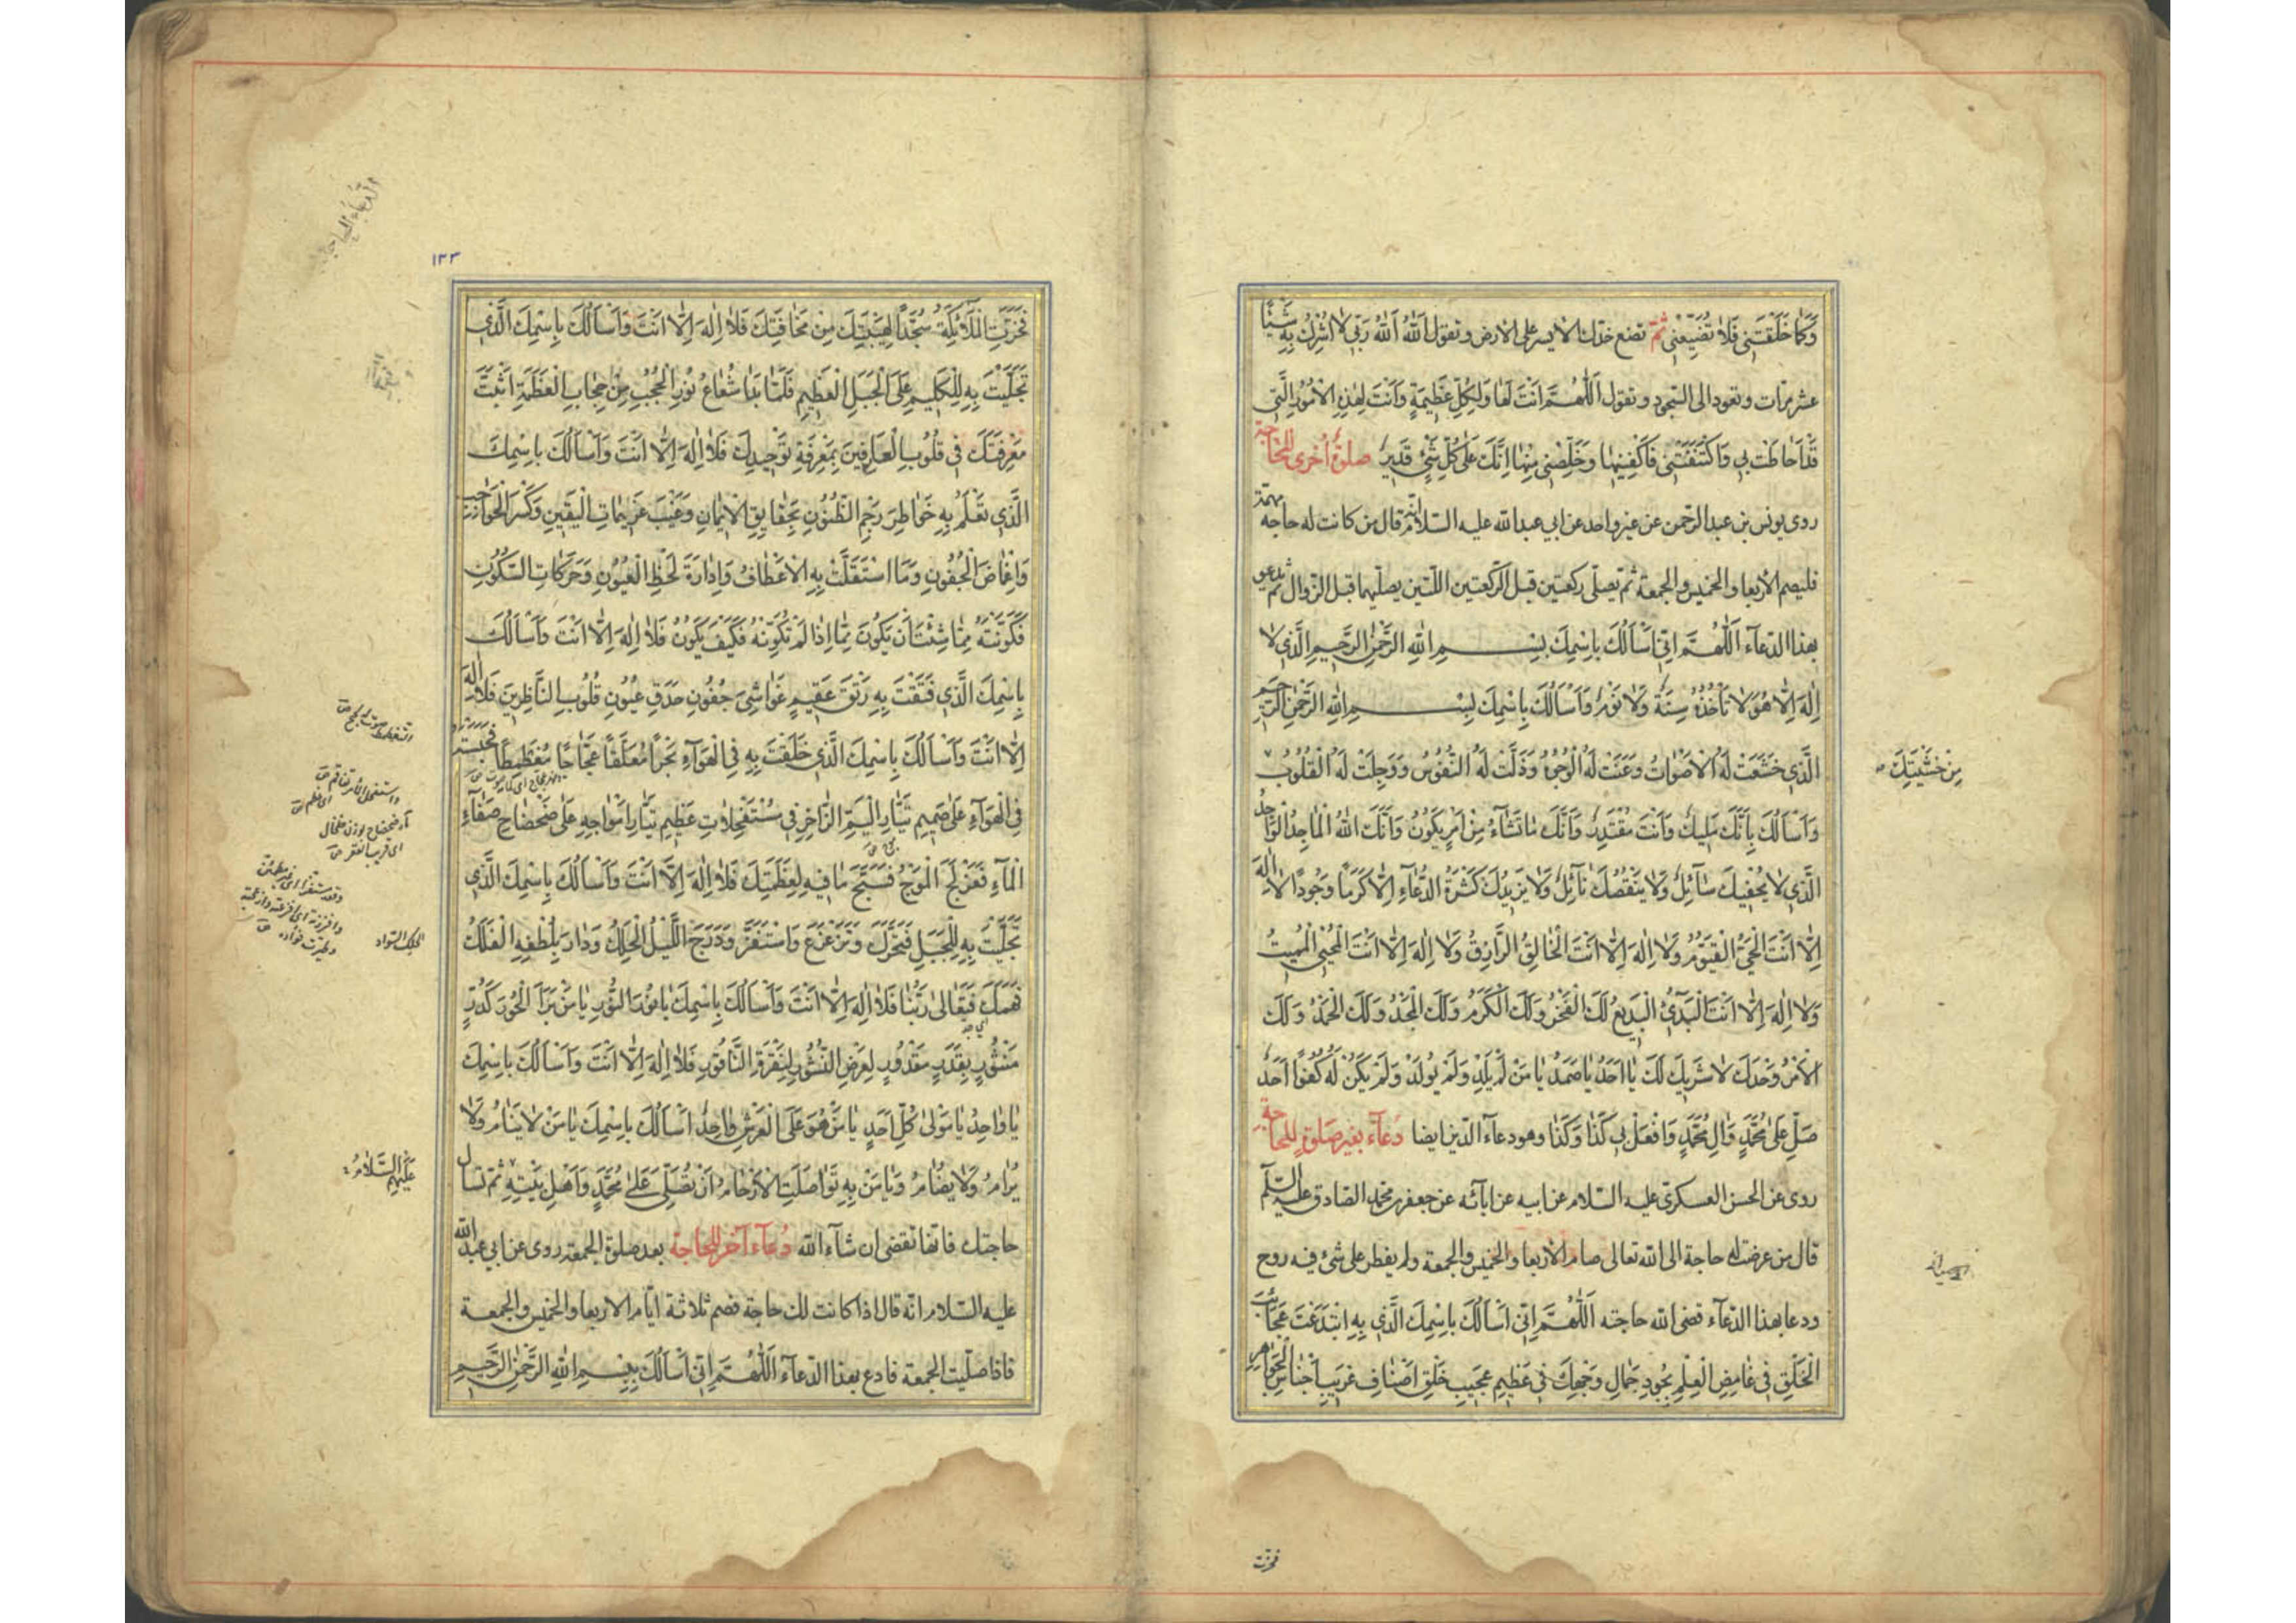 وَكَمَا خَلَقْتَنِي فَلَا تُضَيِّعْنِي ثم تضع خدك الايسر على الارض وتقول اَللّٰهُ اَللّٰهُ رَبِّي لَا اُشْرِكُ بِهِ شَيْئًا
عشر مرات وتعود الى السجود وتقول اَللّٰهُمَّ اَنْتَ لَهَا وَلِكُلِّ عَظِيمَةٍ وَاَنْتَ لِهٰذِهِ الْاُمُورِ الَّتِي
قَدْ اَحَاطَتْ بِي وَاكْتَنَفَتْنِي فَاكْفِنِيهَا وَخَلِّصْنِي مِنْهَا اِنَّكَ عَلَى كُلِّ شَيْءٍ قَدِيرٌ صلوة اخرى للحاجة
روى يونس بن عبد الرحمن عن غير واحد عن ابي عبد الله عليه السلام انه قال من كانت له حاجة مهمة
فليصم الاربعا والخميس والجمعة ثم يصلي ركعتين قبل الركعتين اللتين يصليهما قبل الزوال ثم يدعو
بهذا الدعآء اَللّٰهُمَّ اِنِّي اَسْاَلُكَ بِاسْمِكَ بِسْمِ اللهِ الرَّحْمٰنِ الرَّحِيمِ الَّذِي لَا
اِلٰهَ اِلَّا هُوَ لَا تَأْخُذُهُ سِنَةٌ وَلَا نَوْمٌ وَاَسْاَلُكَ بِاسْمِكَ بِسْمِ اللهِ الرَّحْمٰنِ الرَّحِيمِ
الَّذِي خَشَعَتْ لَهُ الْاَصْوَاتُ وَعَنَتْ لَهُ الْوُجُوهُ وَذَلَّتْ لَهُ النُّفُوسُ وَوَجِلَتْ لَهُ الْقُلُوبُ
مِنْ خَشْيَتِكَ
وَاَسْاَلُكَ بِاَنَّكَ مَلِيكٌ وَاَنْتَ مُقْتَدِرٌ وَاَنَّكَ مَا تَشَآءُ مِنْ اَمْرٍ يَكُونُ وَاَنَّكَ اللهُ الْمَاجِدُ الْوَاجِدُ
الَّذِي لَا يُحْفِيكَ سَآئِلٌ وَلَا يَنْقُصُكَ نَآئِلٌ وَلَا يَزِيدُكَ كَثْرَةُ الدُّعَآءِ اِلَّا كَرَمًا وَجُودًا لَا اِلٰهَ
اِلَّا اَنْتَ الْحَيُّ الْقَيُّومُ وَلَا اِلٰهَ اِلَّا اَنْتَ الْخَالِقُ الرَّازِقُ وَلَا اِلٰهَ اِلَّا اَنْتَ الْمُحْيِي الْمُمِيتُ
وَلَا اِلٰهَ اِلَّا اَنْتَ الْبَدِيءُ الْبَدِيعُ لَكَ الْفَخْرُ وَلَكَ الْكَرَمُ وَلَكَ الْمَجْدُ وَلَكَ الْحَمْدُ وَلَكَ
الْاَمْرُ وَحْدَكَ لَا شَرِيكَ لَكَ يَا اَحَدُ يَا صَمَدُ يَا مَنْ لَمْ يَلِدْ وَلَمْ يُولَدْ وَلَمْ يَكُنْ لَهُ كُفُوًا اَحَدٌ
صَلِّ عَلَى مُحَمَّدٍ وَآلِ مُحَمَّدٍ وَافْعَلْ بِي كَذَا وَكَذَا وهو دعآء الدين ايضا دعآء بغير صلوة للحاجة
روى عن الحسن العسكري عليه السلام عن ابيه عن ابآئه عن جعفر بن محمد الصادق عليه السلم
قال من عرضت له حاجة الى الله تعالى صام الاربعا والخميس والجمعة ولم يفطر على شئ فيه روح
ودعا بهذا الدعآء قضى الله حاجته اَللّٰهُمَّ اِنِّي اَسْاَلُكَ بِاسْمِكَ الَّذِي بِهِ ابْتَدَعْتَ عَجَائِبَ
الْخَلْقِ فِي غَامِضِ الْعِلْمِ بِجُودِ جَمَالِ وَجْهِكَ فِي عَظِيمِ عَجِيبِ خَلْقِ اَصْنَافِ غَرِيبِ اَجْنَاسِ الْجَوَاهِرِ
فخرت
١٣٣
فَخَرَّتِ الْمَلَآئِكَةُ سُجَّدًا لِهَيْبَتِكَ مِنْ مَخَافَتِكَ فَلَا اِلٰهَ اِلَّا اَنْتَ وَاَسْاَلُكَ بِاسْمِكَ الَّذِي
تَجَلَّيْتَ بِهِ لِلْكَلِيمِ عَلَى الْجَبَلِ الْعَظِيمِ فَلَمَّا بَدَا شُعَاعُ نُورِ الْحُجُبِ مِنْ حِجَابِ الْعَظَمَةِ اَثْبَتَّ
مَعْرِفَتَكَ فِي قُلُوبِ الْعَارِفِينَ بِمَعْرِفَةِ تَوْحِيدِكَ فَلَا اِلٰهَ اِلَّا اَنْتَ وَاَسْاَلُكَ بِاسْمِكَ
الَّذِي تَعْلَمُ بِهِ خَوَاطِرَ رَجْمِ الظُّنُونِ بِحَقَايِقِ الْاِيمَانِ وَغَيْبَ عَزِيمَاتِ الْيَقِينِ وَكَسْرَ الْحَوَاجِبِ
وَاِغْمَاضَ الْجُفُونِ وَمَا اسْتَقَلَّتْ بِهِ الْاَعْطَافُ وَاِدَارَةَ لَحْظِ الْعُيُونِ وَحَرَكَاتِ السُّكُونِ
فَكَوَّنْتَهُ مِمَّا شِئْتَ اَنْ يَكُونَ مِمَّا اِذَا لَمْ تُكَوِّنْهُ فَكَيْفَ يَكُونُ فَلَا اِلٰهَ اِلَّا اَنْتَ وَاَسْاَلُكَ
بِاسْمِكَ الَّذِي فَتَقْتَ بِهِ رَتْقَ عَقِيمِ غَوَاشِيَ جُفُونِ حَدَقِ عُيُونِ قُلُوبِ النَّاظِرِينَ فَلَا اِلٰهَ
اِلَّا اَنْتَ وَاَسْاَلُكَ بِاسْمِكَ الَّذِي خَلَقْتَ بِهِ فِي الْهَوَآءِ بَحْرًا مُعَلَّقًا عَجَّاجًا مُغَطْمِطًا فَحَبَسْتَهُ
فِي الْهَوَآءِ عَلَى صَمِيمِ تَيَّارِ الْيَمِّ الزَّاخِرِ فِي مُسْتَفْحِلَاتِ عَظِيمِ تَيَّارِ اَمْوَاجِهِ عَلَى ضَحْضَاحِ صَفَآءِ
الْمَآءِ فَعَزْلَجَ الْمَوْجُ فَسَبَّحَ مَا فِيهِ لِعَظَمَتِكَ فَلَا اِلٰهَ اِلَّا اَنْتَ وَاَسْاَلُكَ بِاسْمِكَ الَّذِي
تَجَلَّيْتَ بِهِ لِلْجَبَلِ فَتَحَرَّكَ وَتَزَعْزَعَ وَاسْتَفَزَّ وَدَرَجَ اللَّيْلُ الْحَلِكُ وَدَارَ بِلُطْفِهِ الْفَلَكُ
الحلك السواد
فَهَمَكَ فَتَعَالَى رَبُّنَا فَلَا اِلٰهَ اِلَّا اَنْتَ وَاَسْاَلُكَ بِاسْمِكَ يَا نُورَ النُّورِ يَا مَنْ بَرَاَ الْحُورَ كَدُرٍّ
مَنْثُورٍ بِقَدَرٍ مَقْدُورٍ لِعَرْضِ النُّشُورِ لِنَقْرَةِ النَّاقُورِ فَلَا اِلٰهَ اِلَّا اَنْتَ وَاَسْاَلُكَ بِاسْمِكَ
يَا وَاحِدُ يَا مَوْلَى كُلِّ اَحَدٍ يَا مَنْ هُوَ عَلَى الْعَرْشِ وَاحِدٌ اَسْاَلُكَ بِاسْمِكَ يَا مَنْ لَا يَنَامُ وَلَا
يُرَامُ وَلَا يُضَامُ وَيَا مَنْ بِهِ تَوَاصَلَتِ الْاَرْحَامُ اَنْ تُصَلِّيَ عَلَى مُحَمَّدٍ وَاَهْلِ بَيْتِهِ ثم تسال
عَلَيْهِمُ السَّلَامُ
حاجتك فانها تقضى ان شآء الله دعآء آخر للحاجة بعد صلوة الجمعة روى عن ابي عبد الله
عليه السلام انه قال اذا كانت لك حاجة فصم ثلاثة ايام الاربعا والخميس والجمعة
فاذا صليت الجمعة فادع بهذا الدعآء اَللّٰهُمَّ اِنِّي اَسْاَلُكَ بِبِسْمِ اللهِ الرَّحْمٰنِ الرَّحِيمِ